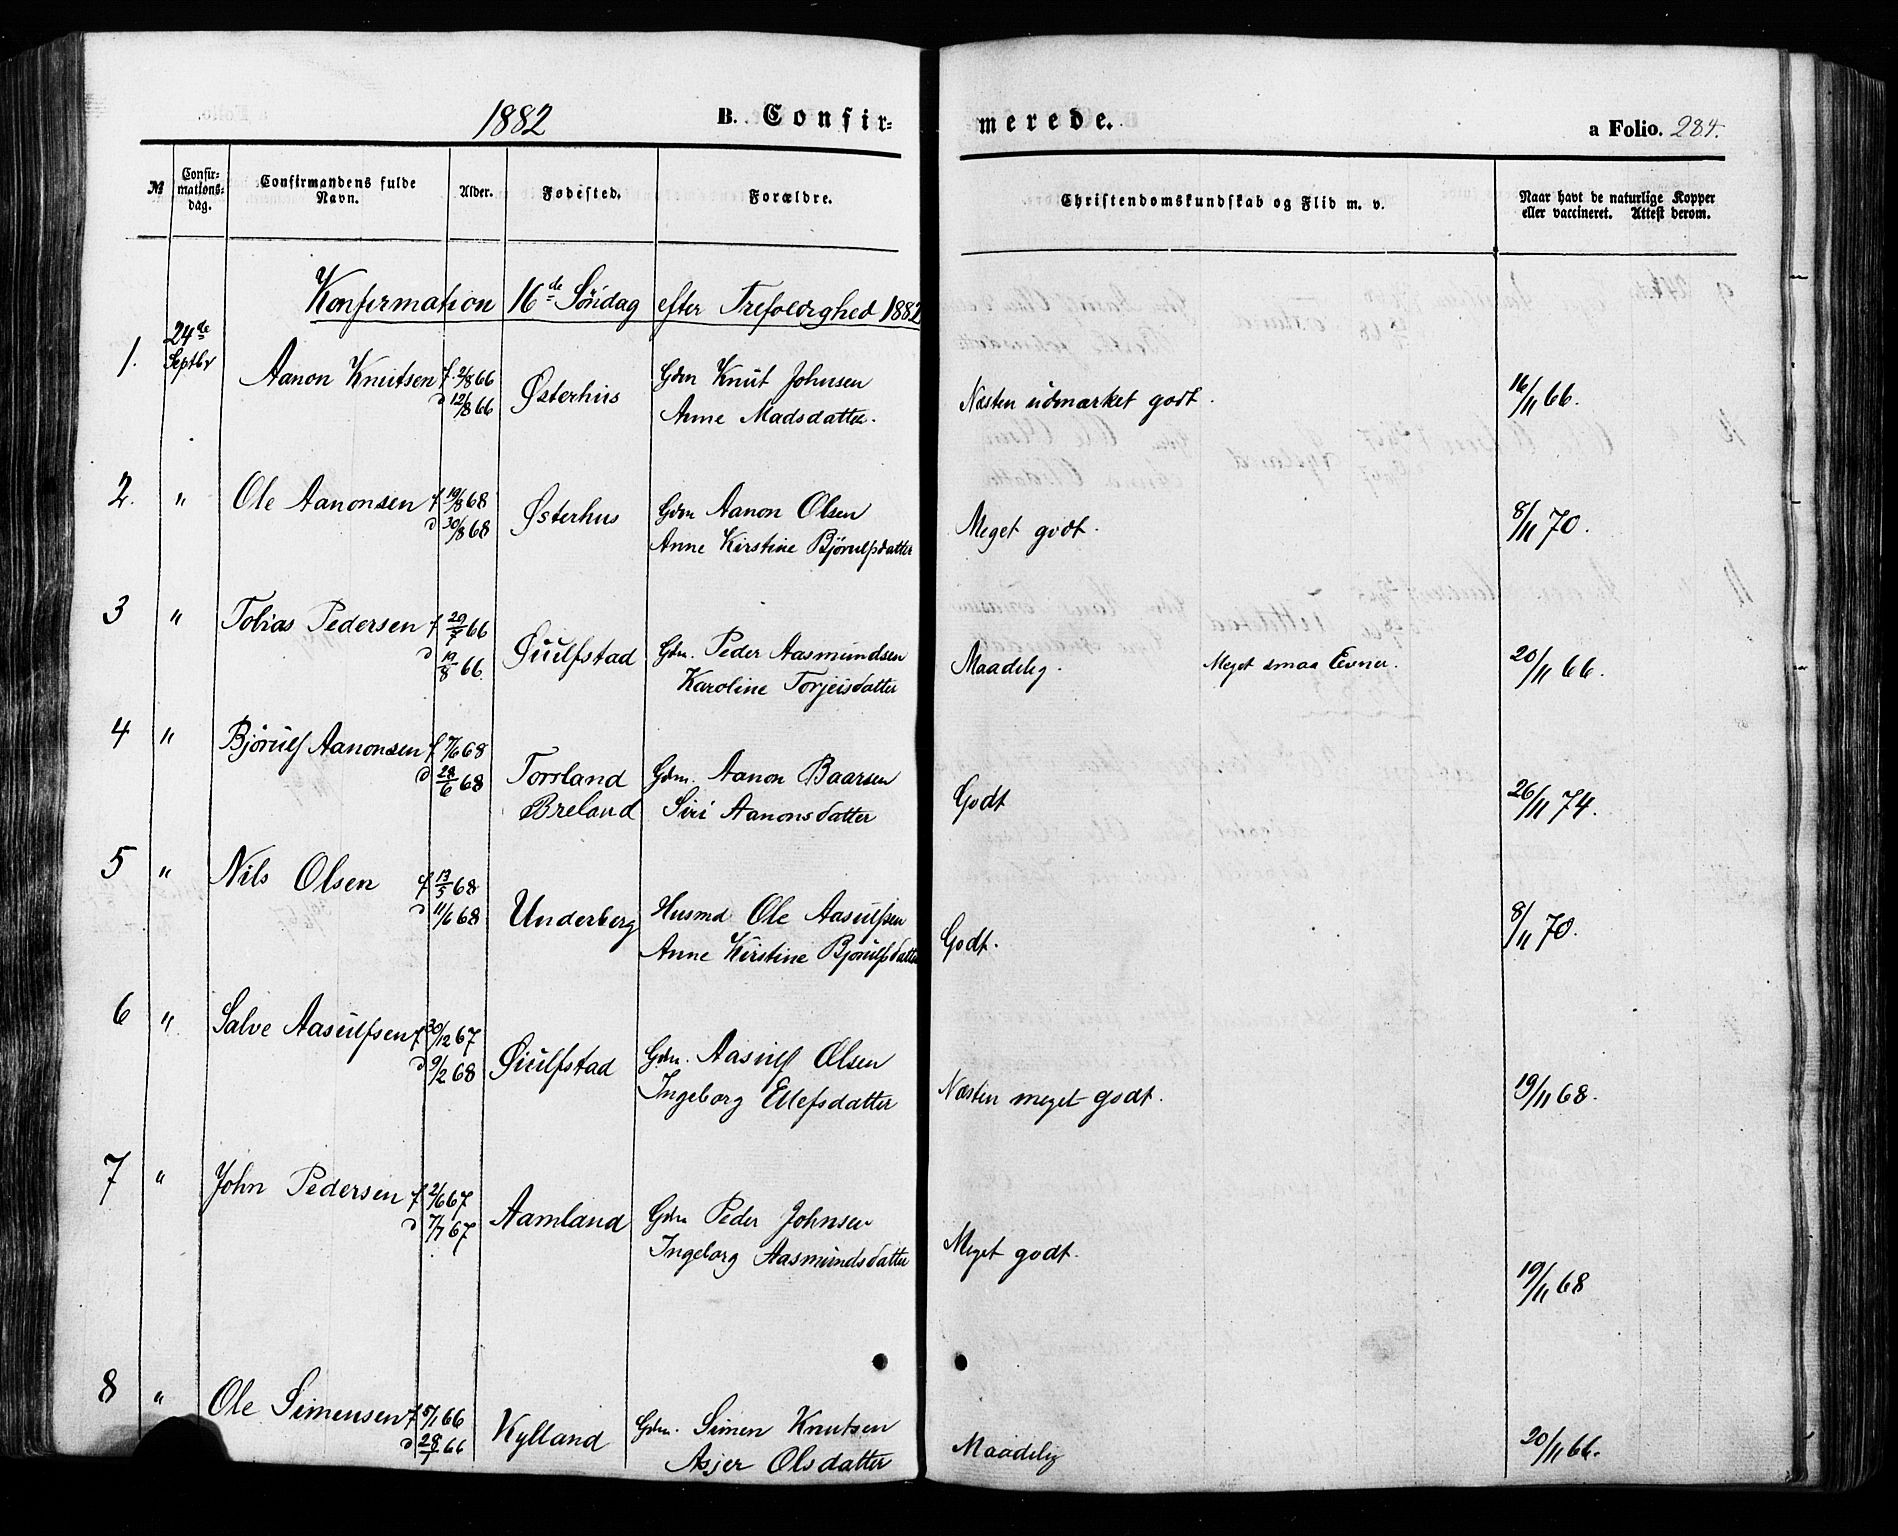 1882 B. Confir- merede. a Folio. 284.
№ Confir-mations-dag. Confirmandens fulde Navn. Alder. Fødested. Forældre. Christendomskundskab og Flid m. v. Naar havt de naturlige Kopper eller vaccineret. Attest derom.
Konfirmation 16de Søndag efter Trefoldighed 1882
1. 24de Septbr Aanon Knutsen f. 2/8 66 Østerhus Gdm Knut Johnsen Næsten udmærket godt. 16/11 66.
d 12/8 66 Anne Madsdatter.
2. " Ole Aanonsen f 19/8 68 Østerhus Gdm Aanon Olsen Meget godt. 8/11 70.
d 30/8 68 Anne Kirstine Bjørulfsdatter
3 " Tobias Pedersen f 20/7 66 Øiulfstad Gdm. Peder Aasmundsen Maadelig. Meget smaa Evner. 20/11 66.
d 19/8 66 Karoline Torjeisdatter
4 " Bjørulf Aanonsen f 7/6 68 Torsland Gdm. Aanon Baarsen Godt 26/11 74.
d 28/6 68 Breland Siri Aanonsdatter
5 " Nils Olsen f 13/5 68 Underberg Husmd Ole Aasulfsen Godt. 8/11 70.
d 11/6 68 Anne Kirstine Bjørulfsdatter
6 " Salve Aasulfsen f 30/12 67 Øiulfstad Gdm. Aasulf Olsen Næsten meget godt. 19/11 68.
d 9/2 68 Ingeborg Ellefsdatter
7 " John Pedersen f 2/6 67 Aamland Gdm Peder Johnsen Meget godt. 19/11 68
d 7/7 67 Ingeborg Aasmundsdatter
8 " Ole Simensen f 5/1 66 Kylland Gdm. Simen Knutsen Maadelig 20/11 66.
d 28/1 66 Asjer Olsdatter